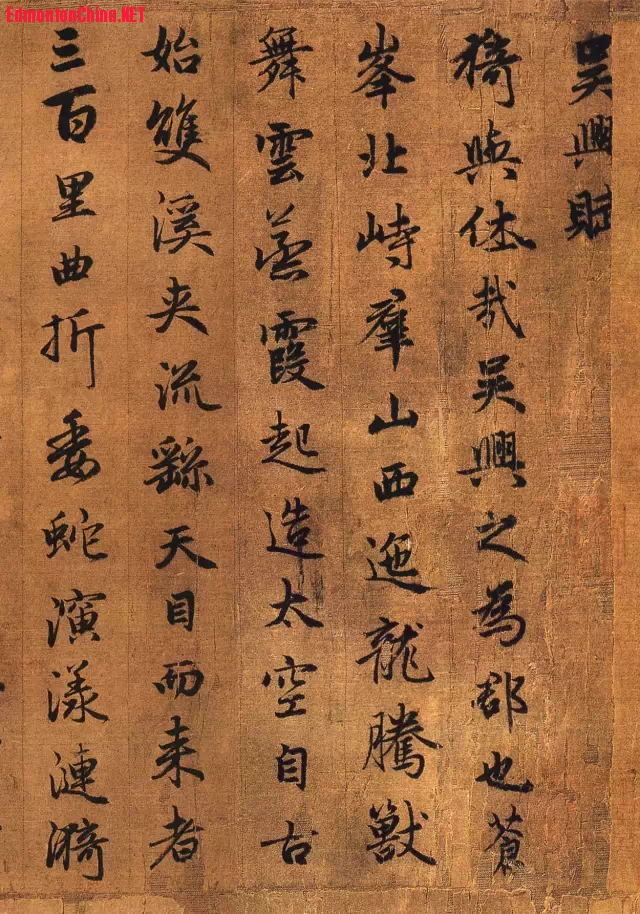 EdmontonChina.NET
吳興賦
猗與休哉吳興之為郡也蒼
峯北峙羣山西迤龍騰獸
舞雲蒸霞起造太空自古
始雙溪夾流繇天目而來者
三百里曲折委蛇演漾漣漪